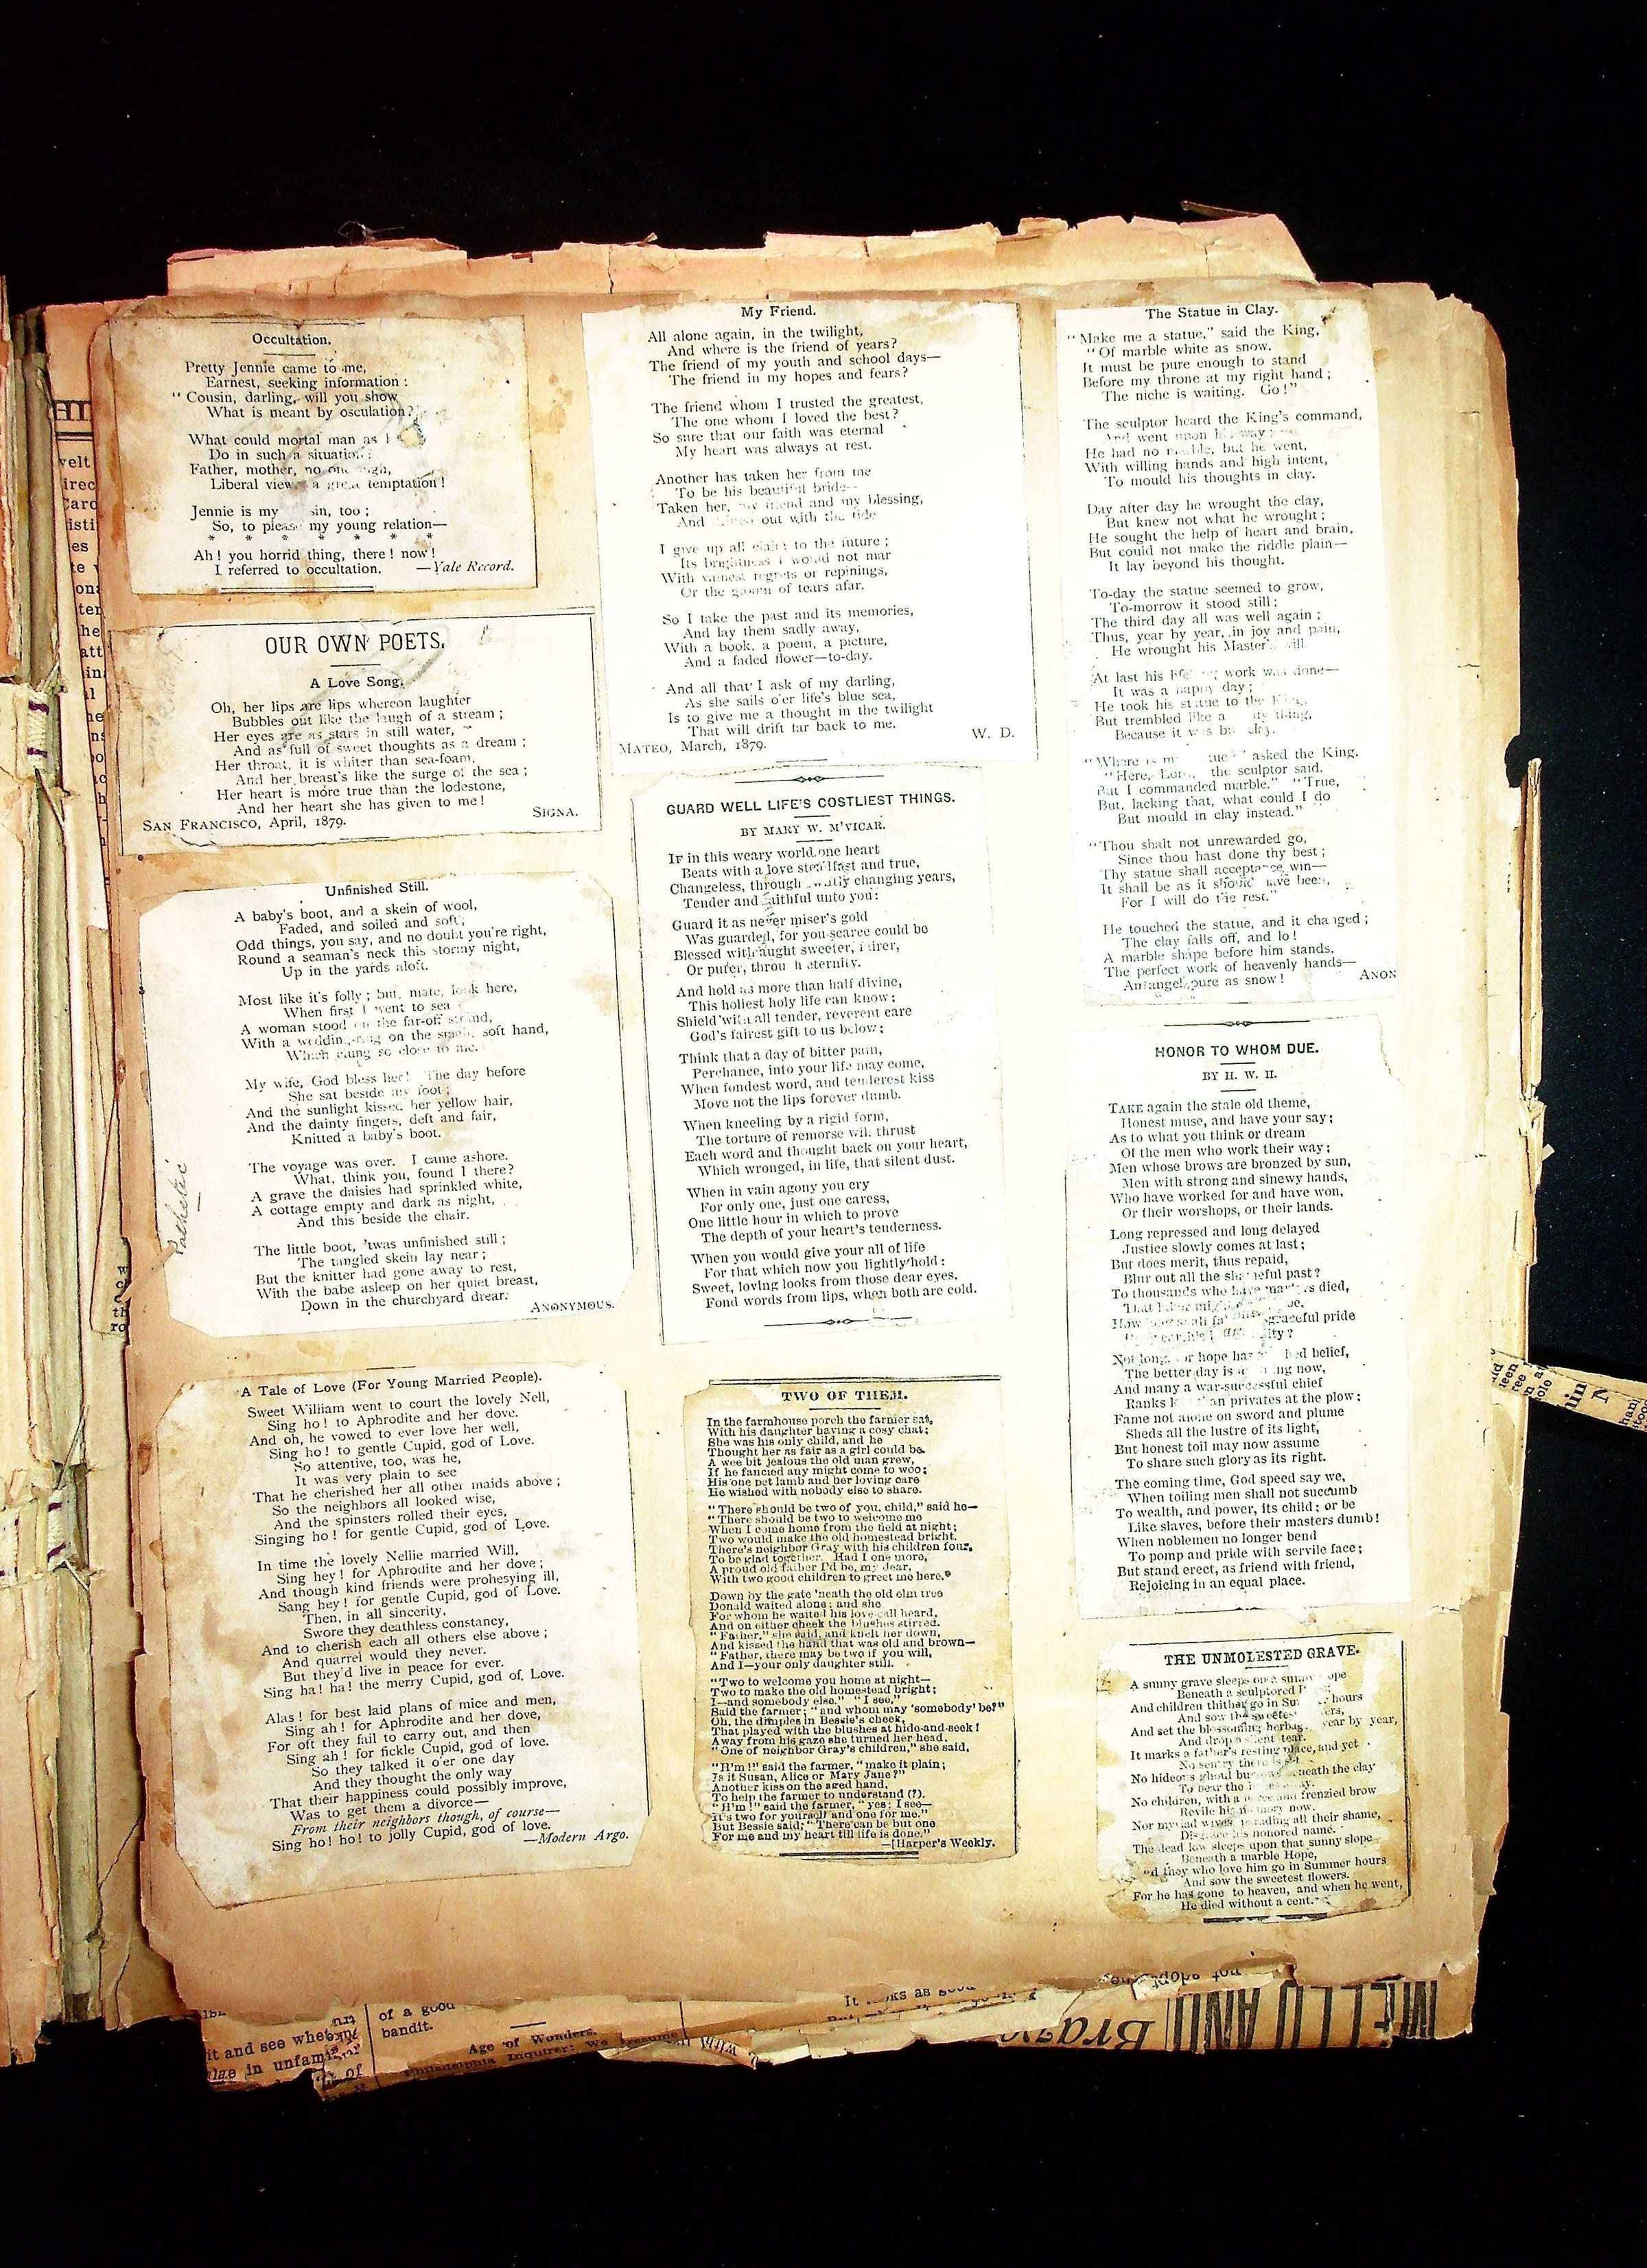 Occultation.
Pretty Jennie came to me,
Earnest, seeking information :
" Cousin, darling, will you show
What is meant by osculation?
What could mortal man as I
Do in such a situation :
Father, mother, no one nigh,
Liberal views a great temptation !
Jennie is my sin, too ;
So, to please my young relation—
* * * * * * *
Ah ! you horrid thing, there ! now !
I referred to occultation. —Yale Record.
OUR OWN POETS.
A Love Song.
Oh, her lips are lips whereon laughter
Bubbles out like the laugh of a stream ;
Her eyes are as stars in still water,
And as full of sweet thoughts as a dream ;
Her throat, it is whiter than sea-foam,
And her breast's like the surge of the sea ;
Her heart is more true than the lodestone,
And her heart she has given to me !
SIGNA.
SAN FRANCISCO, April, 1879.
Unfinished Still.
A baby's boot, and a skein of wool,
Faded, and soiled and soft ;
Odd things, you say, and no doubt you're right,
Round a seaman's neck this stormy night,
Up in the yards aloft.
Most like it's folly ; but, mate, look here,
When first I went to sea
A woman stood on the far-off strand,
With a wedding-ring on the small, soft hand,
Which clung so close to me.
My wife, God bless her! The day before
She sat beside my foot ;
And the sunlight kissed her yellow hair,
And the dainty fingers, deft and fair,
Knitted a baby's boot.
The voyage was over. I came ashore.
What, think you, found I there?
A grave the daisies had sprinkled white,
A cottage empty and dark as night,
And this beside the chair.
The little boot, 'twas unfinished still ;
The tangled skein lay near ;
But the knitter had gone away to rest,
With the babe asleep on her quiet breast,
Down in the churchyard drear.
ANONYMOUS.
Pathetic
A Tale of Love (For Young Married People).
Sweet William went to court the lovely Nell,
Sing ho ! to Aphrodite and her dove.
And oh, he vowed to ever love her well,
Sing ho ! to gentle Cupid, god of Love.
So attentive, too, was he,
It was very plain to see
That he cherished her all other maids above ;
So the neighbors all looked wise,
And the spinsters rolled their eyes,
Singing ho ! for gentle Cupid, god of Love.
In time the lovely Nellie married Will,
Sing hey ! for Aphrodite and her dove ;
And though kind friends were prohesying ill,
Sang hey ! for gentle Cupid, god of Love.
Then, in all sincerity,
Swore they deathless constancy,
And to cherish each all others else above ;
And quarrel would they never.
But they'd live in peace for ever.
Sing ha! ha! the merry Cupid, god of Love.
Alas ! for best laid plans of mice and men,
Sing ah ! for Aphrodite and her dove,
For oft they fail to carry out, and then
Sing ah ! for fickle Cupid, god of love.
So they talked it o'er one day
And they thought the only way
That their happiness could possibly improve,
Was to get them a divorce—
From their neighbors though, of course—
Sing ho! ho! to jolly Cupid, god of love.
—Modern Argo.
My Friend.
All alone again, in the twilight,
And where is the friend of years?
The friend of my youth and school days—
The friend in my hopes and fears?
The friend whom I trusted the greatest,
The one whom I loved the best?
So sure that our faith was eternal
My heart was always at rest.
Another has taken her from me
To be his beautiful bride—
Taken her, my friend and my blessing,
And out with the tide
I give up all claim to the future ;
Its brightness I would not mar
With vainest regrets or repinings,
Or the gloom of tears afar.
So I take the past and its memories,
And lay them sadly away,
With a book, a poem, a picture,
And a faded flower—to-day.
And all that I ask of my darling,
As she sails o'er life's blue sea,
Is to give me a thought in the twilight
That will drift far back to me.
W. D.
MATEO, March, 1879.
GUARD WELL LIFE'S COSTLIEST THINGS.
BY MARY W. M'VICAR.
IF in this weary world one heart
Beats with a love steadfast and true,
Changeless, through swiftly changing years,
Tender and faithful unto you:
Guard it as never miser's gold
Was guarded, for you scarce could be
Blessed with aught sweeter, fairer,
Or purer, through eternity.
And hold as more than half divine,
This holiest holy life can know;
Shield with all tender, reverent care
God's fairest gift to us below;
Think that a day of bitter pain,
Perchance, into your life may come,
When fondest word, and tenderest kiss
Move not the lips forever dumb.
When kneeling by a rigid form,
The torture of remorse will thrust
Each word and thought back on your heart,
Which wronged, in life, that silent dust.
When in vain agony you cry
For only one, just one caress,
One little hour in which to prove
The depth of your heart's tenderness.
When you would give your all of life
For that which now you lightly hold:
Sweet, loving looks from those dear eyes,
Fond words from lips, when both are cold.
TWO OF THEM.
In the farmhouse porch the farmer sat,
With his daughter having a cosy chat;
She was his only child, and he
Thought her as fair as a girl could be.
A wee bit jealous the old man grew,
If he fancied any might come to woo;
His one pet lamb and her loving care
He wished with nobody else to share.
"There should be two of you, child," said he—
"There should be two to welcome me
When I come home from the field at night;
Two would make the old homestead bright.
There's neighbor Gray with his children four,
To be glad together. Had I one more,
A proud old father I'd be, my dear,
With two good children to greet me here."
Down by the gate 'neath the old elm tree
Donald waited alone; and she
For whom he waited his love-call heard,
And on either cheek the blushes stirred.
"Father," she said, and knelt her down,
And kissed the hand that was old and brown—
"Father, there may be two if you will,
And I—your only daughter still.
"Two to welcome you home at night—
Two to make the old homestead bright;
I—and somebody else." "I see,"
Said the farmer; "and whom may 'somebody' be?"
Oh, the dimples in Bessie's cheek,
That played with the blushes at hide-and-seek!
Away from his gaze she turned her head,
"One of neighbor Gray's children," she said.
"H'm!" said the farmer, "make it plain;
Is it Susan, Alice or Mary Jane?"
Another kiss on the aged hand,
To help the farmer to understand (?).
"H'm!" said the farmer, "yes; I see—
It's two for yourself and one for me."
But Bessie said; "There can be but one
For me and my heart till life is done."
—[Harper's Weekly.
The Statue in Clay.
" Make me a statue," said the King,
" Of marble white as snow.
It must be pure enough to stand
Before my throne at my right hand ;
The niche is waiting. Go !"
The sculptor heard the King's command,
And went upon his way ;
He had no marble, but he went,
With willing hands and high intent,
To mould his thoughts in clay.
Day after day he wrought the clay,
But knew not what he wrought ;
He sought the help of heart and brain,
But could not make the riddle plain—
It lay beyond his thought.
To-day the statue seemed to grow,
To-morrow it stood still ;
The third day all was well again ;
Thus, year by year, in joy and pain,
He wrought his Master's will.
At last his life' work was done—
It was a happy day ;
He took his statue to the King,
But trembled like a thing,
Because it was but clay.
"Where is my tue ?" asked the King.
"Here, Lord, the sculptor said.
But I commanded marble." "True,
But, lacking that, what could I do
But mould in clay instead."
"Thou shalt not unrewarded go,
Since thou hast done thy best ;
Thy statue shall acceptance win—
It shall be as it should have been,
For I will do the rest."
He touched the statue, and it changed ;
The clay falls off, and lo !
A marble shape before him stands,
The perfect work of heavenly hands—
An angel, pure as snow !
ANON
HONOR TO WHOM DUE.
BY H. W. H.
TAKE again the stale old theme,
Honest muse, and have your say;
As to what you think or dream
Of the men who work their way;
Men whose brows are bronzed by sun,
Men with strong and sinewy hands,
Who have worked for and have won,
Or their worships, or their lands.
Long repressed and long delayed
Justice slowly comes at last;
But does merit, thus repaid,
Blur out all the shameful past?
To thousands who have martyrs died,
That labor might be.
How long shall graceful pride
ity?
Not long, or hope has belief,
The better day is ing now,
And many a war-successful chief
Ranks an privates at the plow;
Fame not alone on sword and plume
Sheds all the lustre of its light,
But honest toil may now assume
To share such glory as its right.
The coming time, God speed say we,
When toiling men shall not succumb
To wealth, and power, its child; or be
Like slaves, before their masters dumb!
When noblemen no longer bend
To pomp and pride with servile face;
But stand erect, as friend with friend,
Rejoicing in an equal place.
THE UNMOLESTED GRAVE.
A sunny grave sleeps on a sunny ope
Beneath a sculptored
And children thither go in Summer hours
And sow the sweetest ers,
And set the blossoming herbage year by year,
And drop a silent tear.
It marks a father's resting place, and yet
No sentry there is set
No hideous ghoul beneath the clay
To bear the away.
No children, with a and frenzied brow
Revile his memory now.
Nor myriad wives, parading all their shame,
Disgrace his honored name.
The dead low sleeps upon that sunny slope
Beneath a marble Hope,
nd they who love him go in Summer hours
And sow the sweetest flowers.
For he has gone to heaven, and when he went,
He died without a cent.
it and see whether
in unfami
of a good
bandit.
Age of Wonders.
Philadelphia Inquirer: We presume
It looks as good
not adopt
Braz
MELLO AND